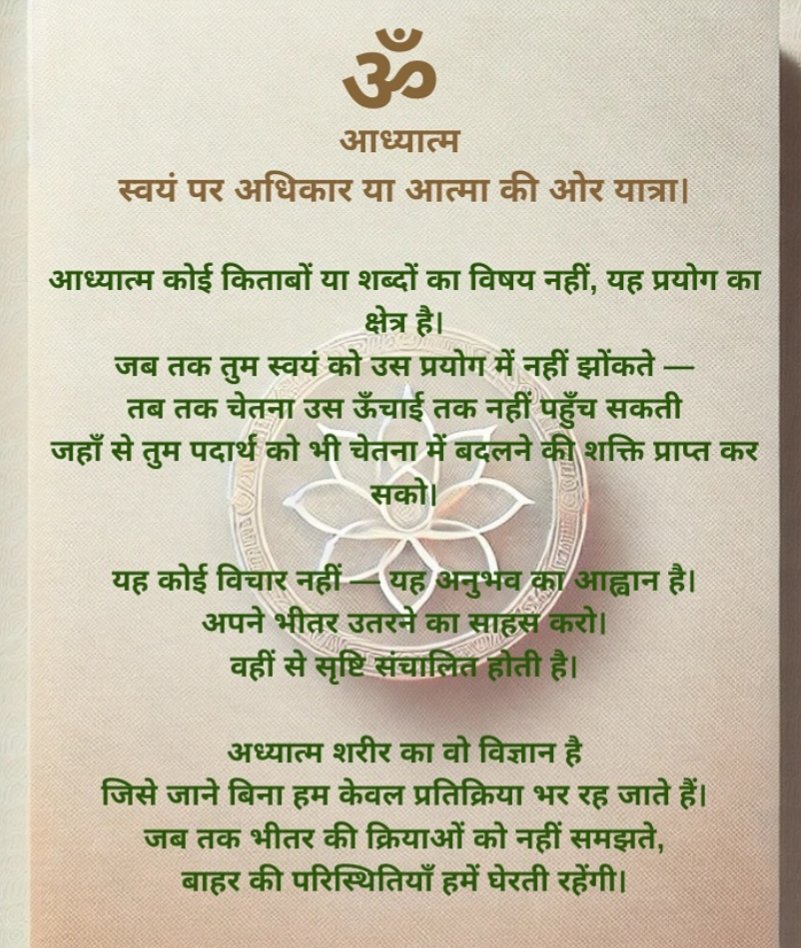 ॐ
आध्यात्म
स्वयं पर अधिकार या आत्मा की ओर यात्रा।
आध्यात्म कोई किताबों या शब्दों का विषय नहीं, यह प्रयोग का
क्षेत्र है।
जब तक तुम स्वयं को उस प्रयोग में नहीं झोंकते —
तब तक चेतना उस ऊँचाई तक नहीं पहुँच सकती
जहाँ से तुम पदार्थ को भी चेतना में बदलने की शक्ति प्राप्त कर
सको।
यह कोई विचार नहीं — यह अनुभव का आह्वान है।
अपने भीतर उतरने का साहस करो।
वहीं से सृष्टि संचालित होती है।
अध्यात्म शरीर का वो विज्ञान है
जिसे जाने बिना हम केवल प्रतिक्रिया भर रह जाते हैं।
जब तक भीतर की क्रियाओं को नहीं समझते,
बाहर की परिस्थितियाँ हमें घेरती रहेंगी।